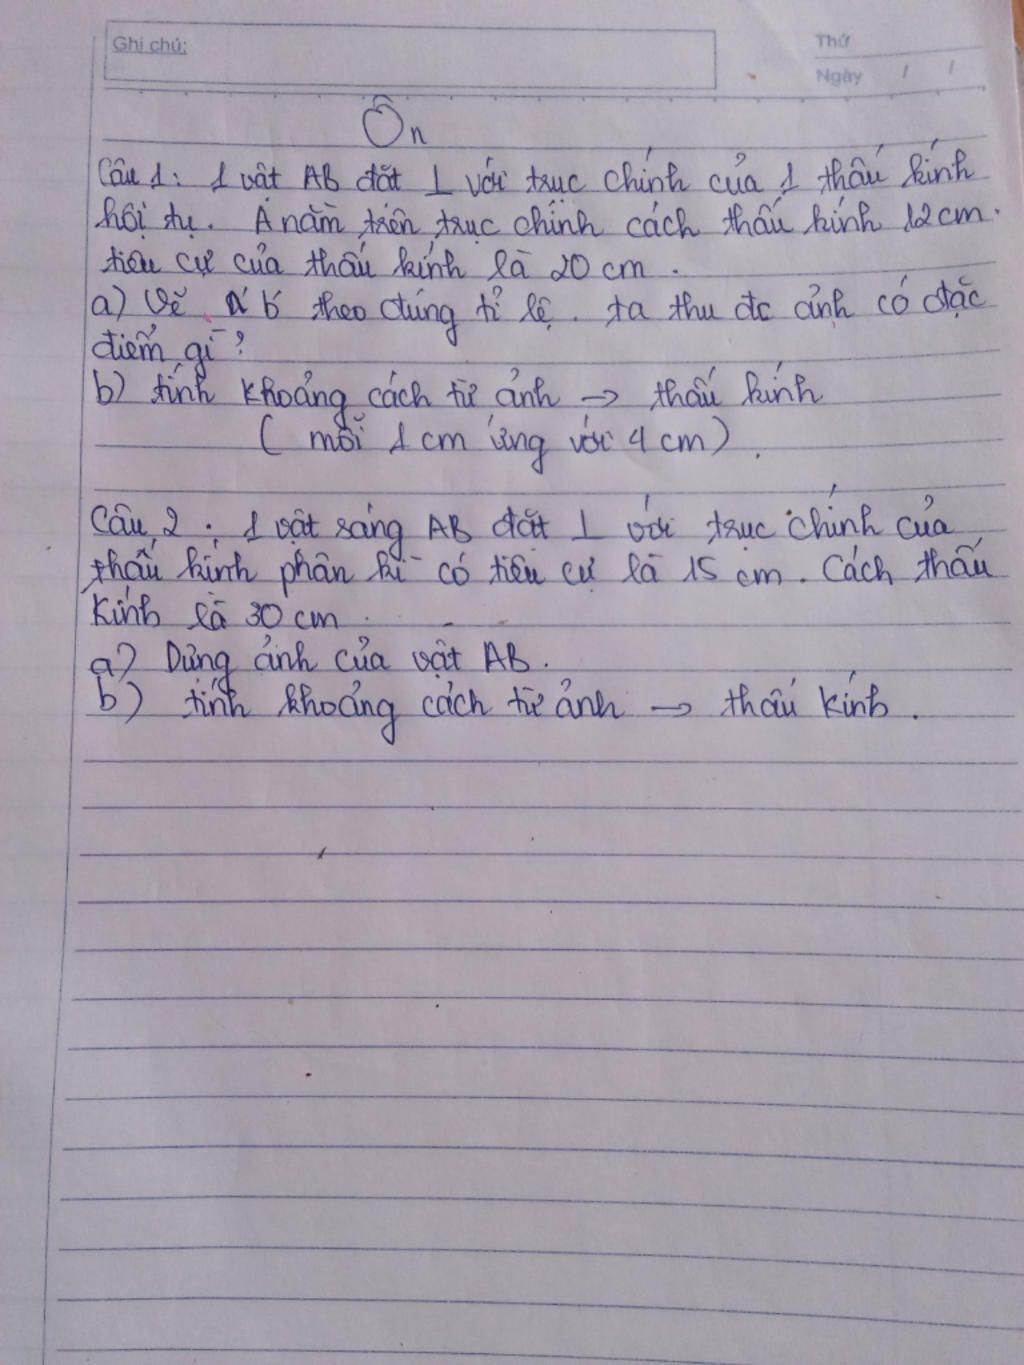 Ghi chú:
Thứ
Ngày / /
Ôn
Câu 1: 1 vật AB đặt ⊥ với trục chính của 1 thấu kính
hội tụ. A nằm trên trục chính cách thấu kính 12cm.
tiêu cự của thấu kính là 20 cm.
a) Vẽ A' B' theo đúng tỉ lệ. ta thu đc ảnh có đặc
điểm gì?
b) tính khoảng cách từ ảnh → thấu kính
( mỗi 1 cm ứng với 4 cm).
Câu 2: 1 vật sáng AB đặt ⊥ với trục chính của
thấu kính phân kì có tiêu cự là 15 cm. Cách thấu
kính là 30 cm.
a) Dựng ảnh của vật AB.
b) tính khoảng cách từ ảnh → thấu kính.